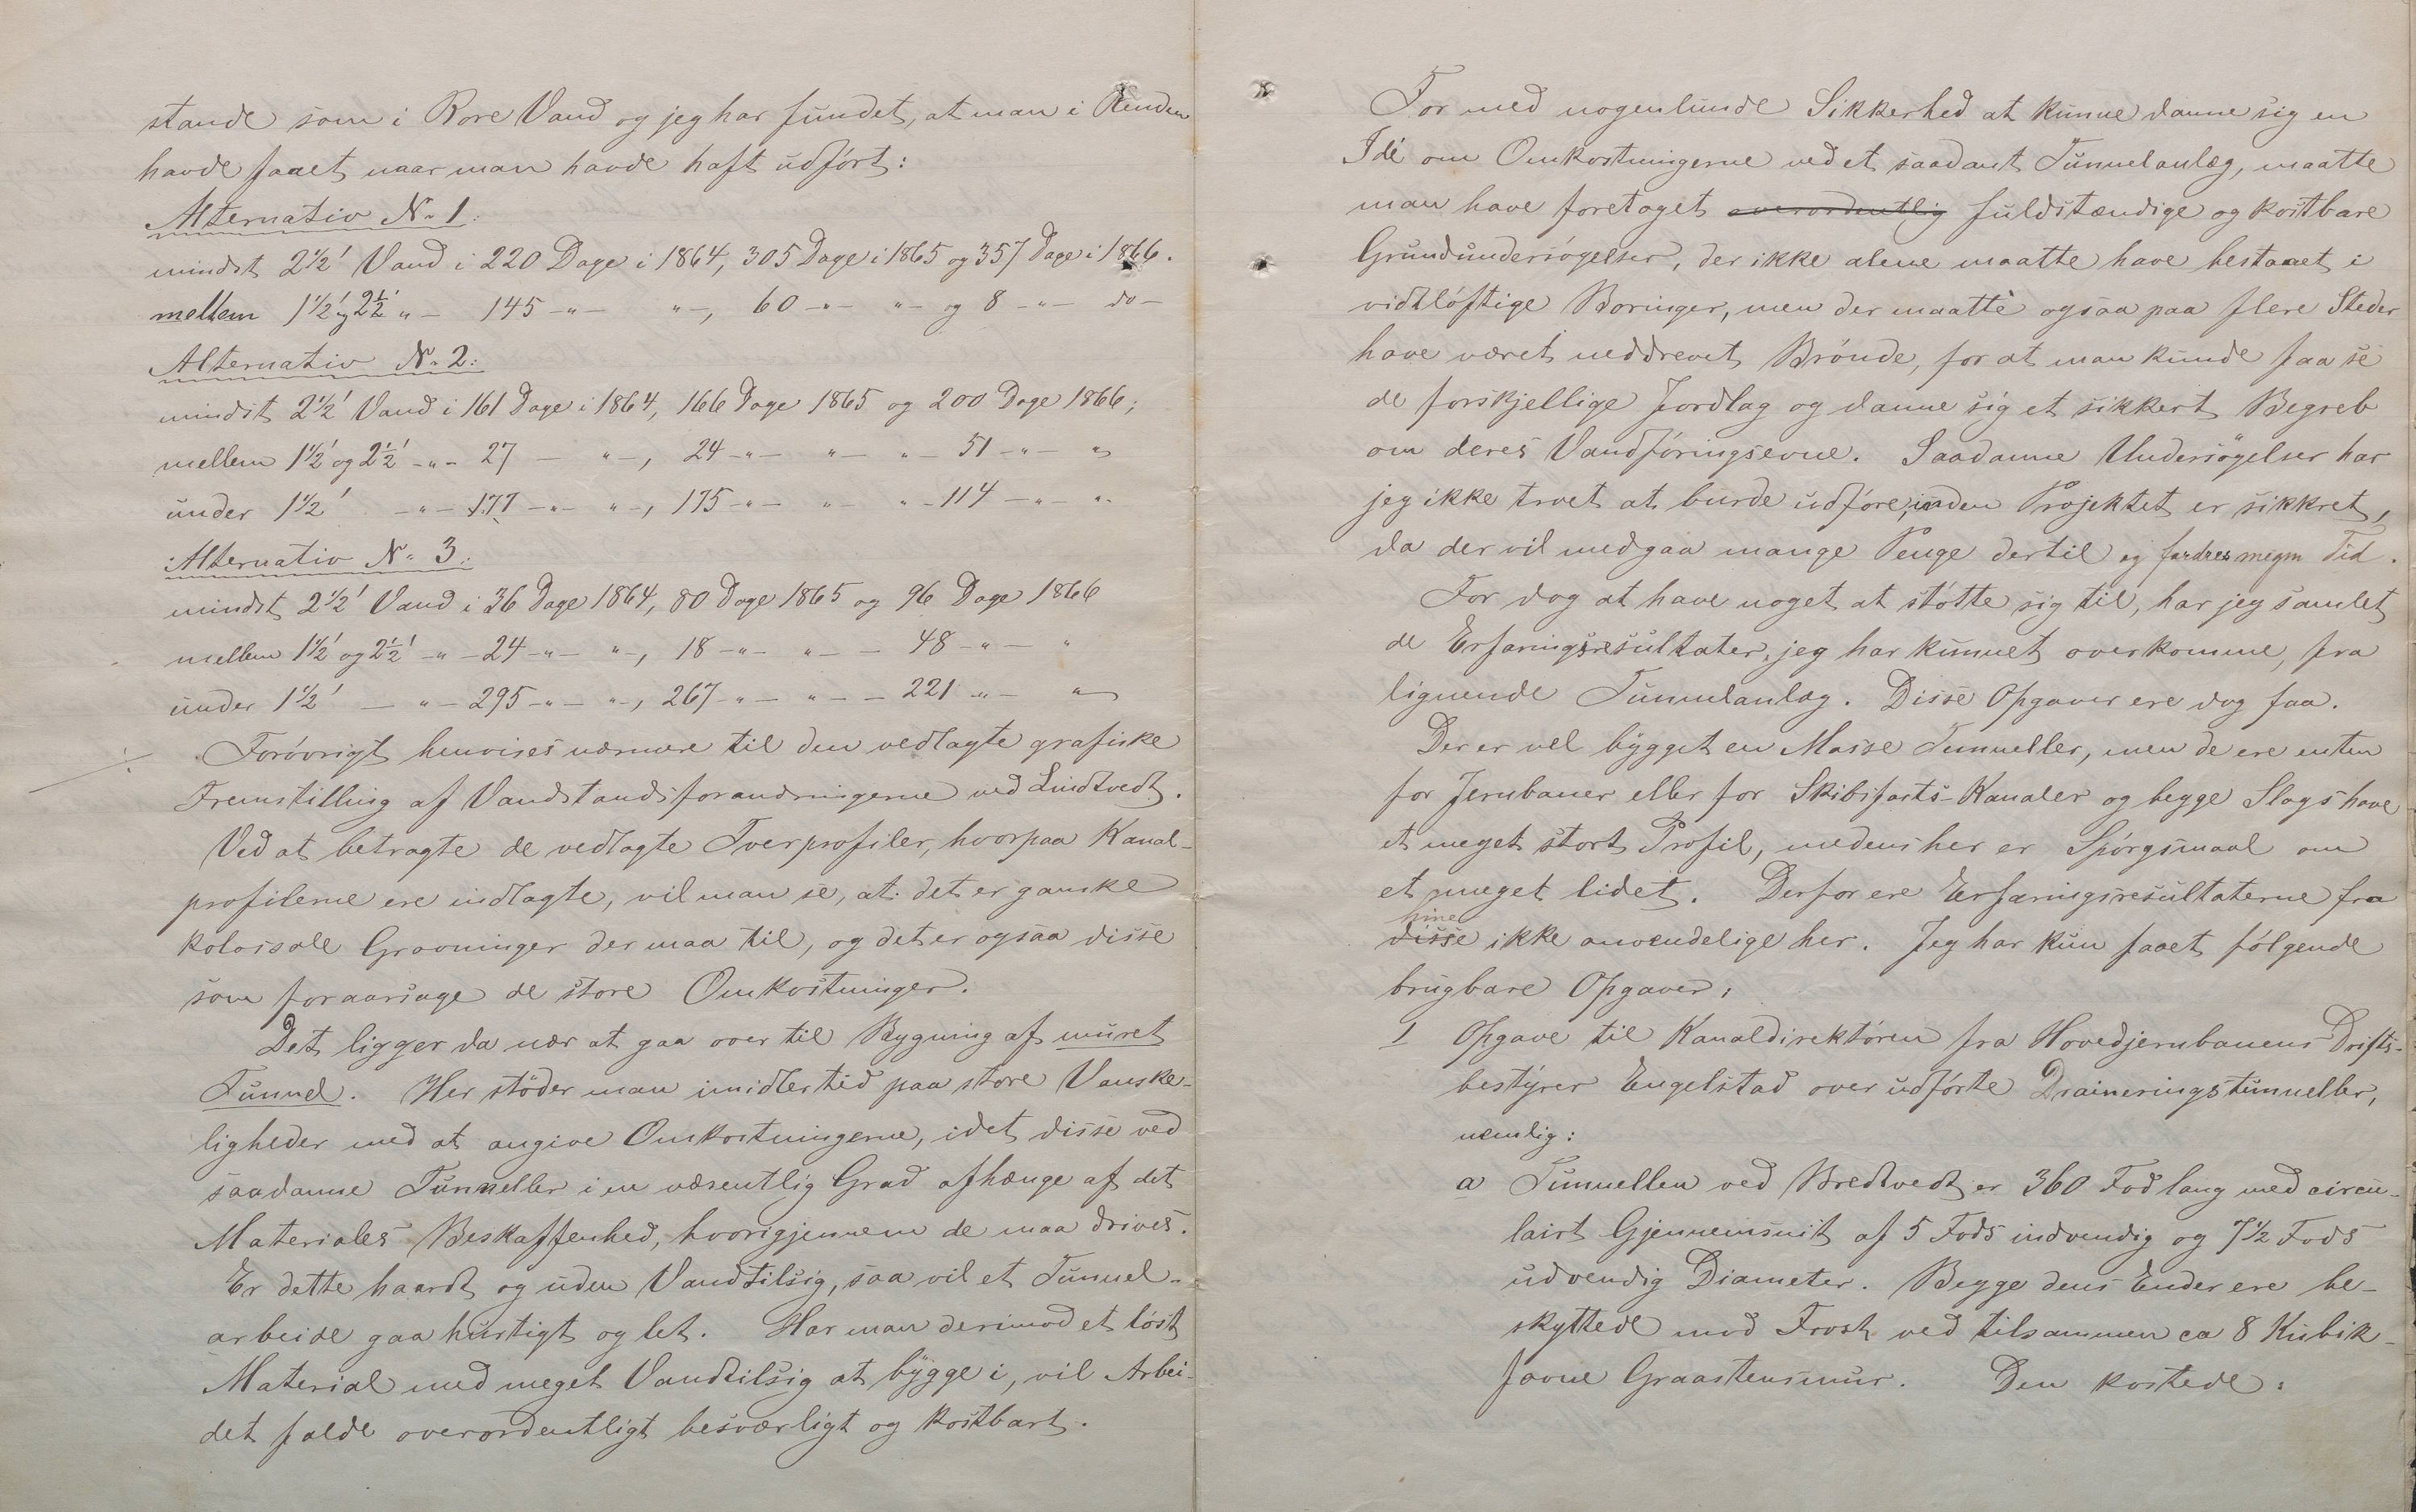 stande som i Rore Vand og jeg har fundet, at man i Renden
havde faaet naar man havde haft udført:
Alternativ No 1.
mindst 2 1/2' Vand i 220 Dage i 1864, 305 Dage i 1865 og 357 Dage i 1866.
mellem 1 1/2' og 2 1/2' " - 145 - " - " -, 60 - " - " - og 8 - " - do -
Alternativ No 2:
mindst 2 1/2' Vand i 161 Dage i 1864, 166 Dage 1865 og 200 Dage 1866;
mellem 1 1/2' og 2 1/2' - " - 27 - " -, 24 - " - " - " - 51 - " - "
under 1 1/2' - " - 177 - " - " -, 175 - " - " - " - 114 - " - "
Alternativ No 3.
mindst 2 1/2' Vand i 36 Dage 1864, 80 Dage 1865 og 96 Dage 1866
mellem 1 1/2' og 2 1/2' - " - 24 - " - " -, 18 - " - " - - 48 - " - "
under 1 1/2' - " - 295 - " - " -, 267 - " - " - - 221 - " - "
Forøvrigt henvises nærmere til den vedlagte grafiske
Fremstilling af Vandstandsforandringerne ved Lindtvedt.
Ved at betragte de vedlagte Tverprofiler, hvorpaa Kanal-
profilerne ere indlagte, vil man se, at det er ganske
kolossale Gravninger der maa til, og det er ogsaa disse
som foraarsage de store Omkostninger.
Det ligger da nær at gaa over til Bygning af muret
Tunnel. Her støder man imidlertid paa store Vanske-
ligheder med at angive Omkostningerne, idet disse ved
saadanne Tunneller i en væsentlig Grad afhænge af det
Materiales Beskaffenhed, hvorigjennem de maa drives.
Er dette haardt og uden Vandtilsig, saa vil et Tunnel-
arbeide gaa hurtigt og let. Har man derimod et løst
Material med meget Vandtilsig at bygge i, vil Arbei-
det falde overordentligt besværligt og kostbart.
For med nogenlunde Sikkerhed at kunne danne sig en
Idé om Omkostningerne ved et saadant Tunnelanlæg, maatte
man have foretaget overordentlig fuldstændige og kostbare
Grundundersøgelser, der ikke alene maatte have bestaaet i
vidtløftige Boringer, men der maatte ogsaa paa flere Steder
have været neddrevet Brønde, for at man kunde faa se
de forskjellige Jordlag og danne sig et sikkert Begreb
om deres Vandføringsevne. Saadanne Undersøgelser har
jeg ikke troet at burde udføre, inden Projektet er sikkret,
da der vil medgaa mange Penge dertil og fordres megen Tid.
For dog at have noget at støtte sig til, har jeg samlet
de Erfaringsresultater, jeg har kunnet overkomme, fra
lignende Tunnelanlæg. Disse Opgaver ere dog faa.
Der er vel bygget en Masse Tunneller, men de ere enten
for Jernbaner eller for Skibsfarts-Kanaler og begge Slags have
et meget stort Profil, medens her er Spørgsmaal om
et meget lidet. Derfor ere Erfaringsresultaterne fra
hine
disse ikke anvendelige her. Jeg har kun faaet følgende
brugbare Opgaver:
1 Opgave til Kanaldirektøren fra Hovedjernbanens Drifts-
bestyrer Engelstad over udførte Draineringstunneller,
nemlig:
a Tunnellen ved Bredtvedt er 360 Fod lang med circu-
lairt Gjennemsnit af 5 Fods indvendig og 7 1/2 Fods
udvendig Diameter. Begge dens Ender ere be-
skyttede mod Frost ved tilsammen ca 8 Kubik-
favne Graastensmur. Den kostede: